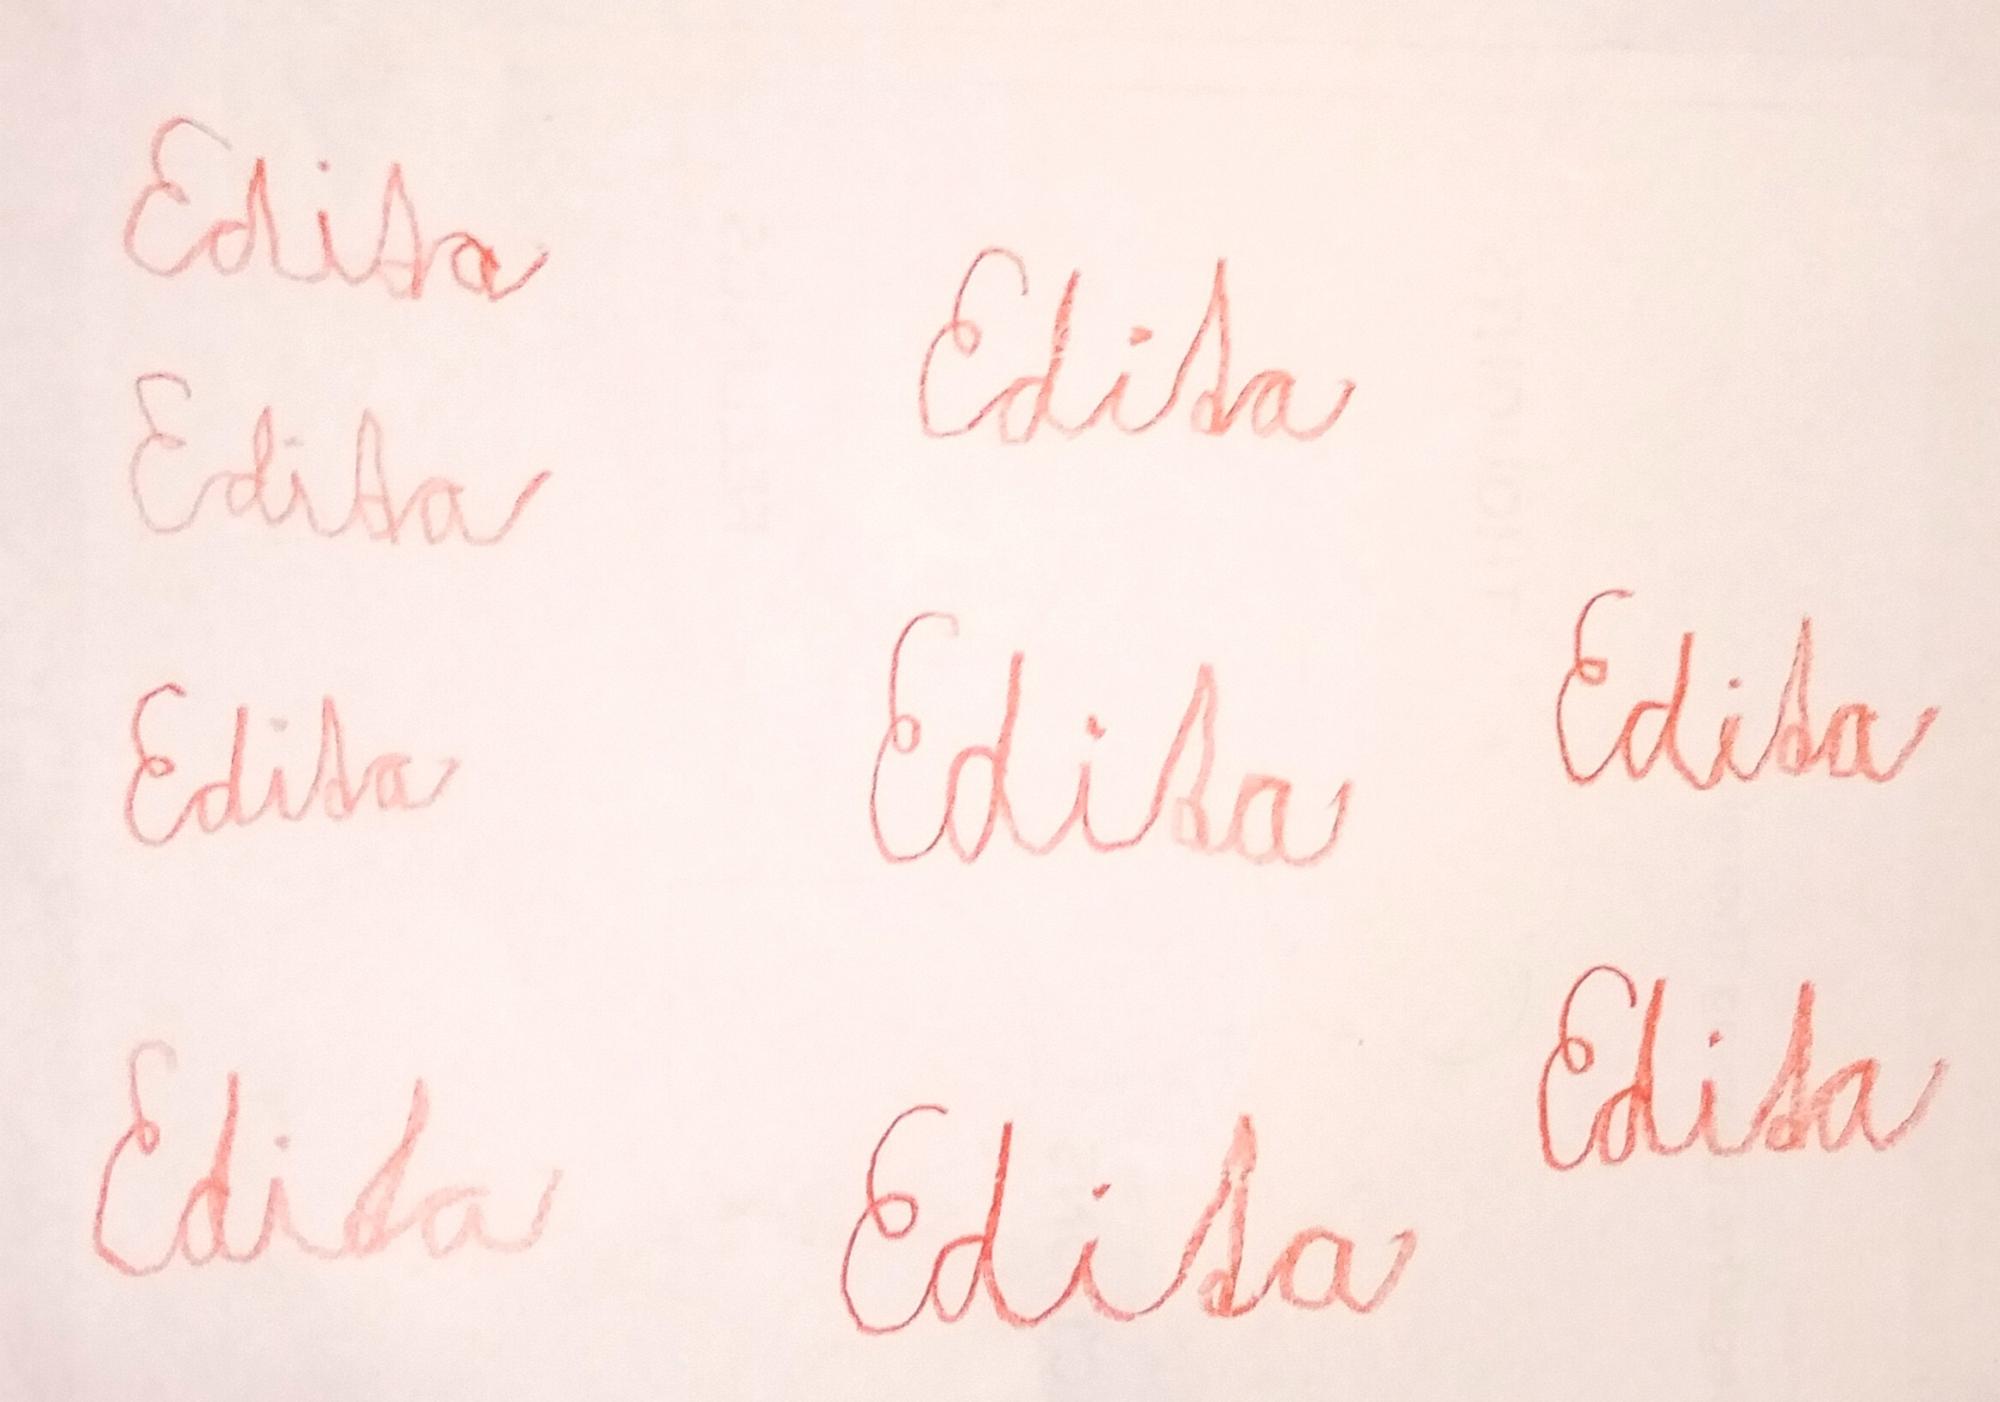 Edita
Edita
Edita
Edita
Edita
Edita
Edita
Edita
Edita